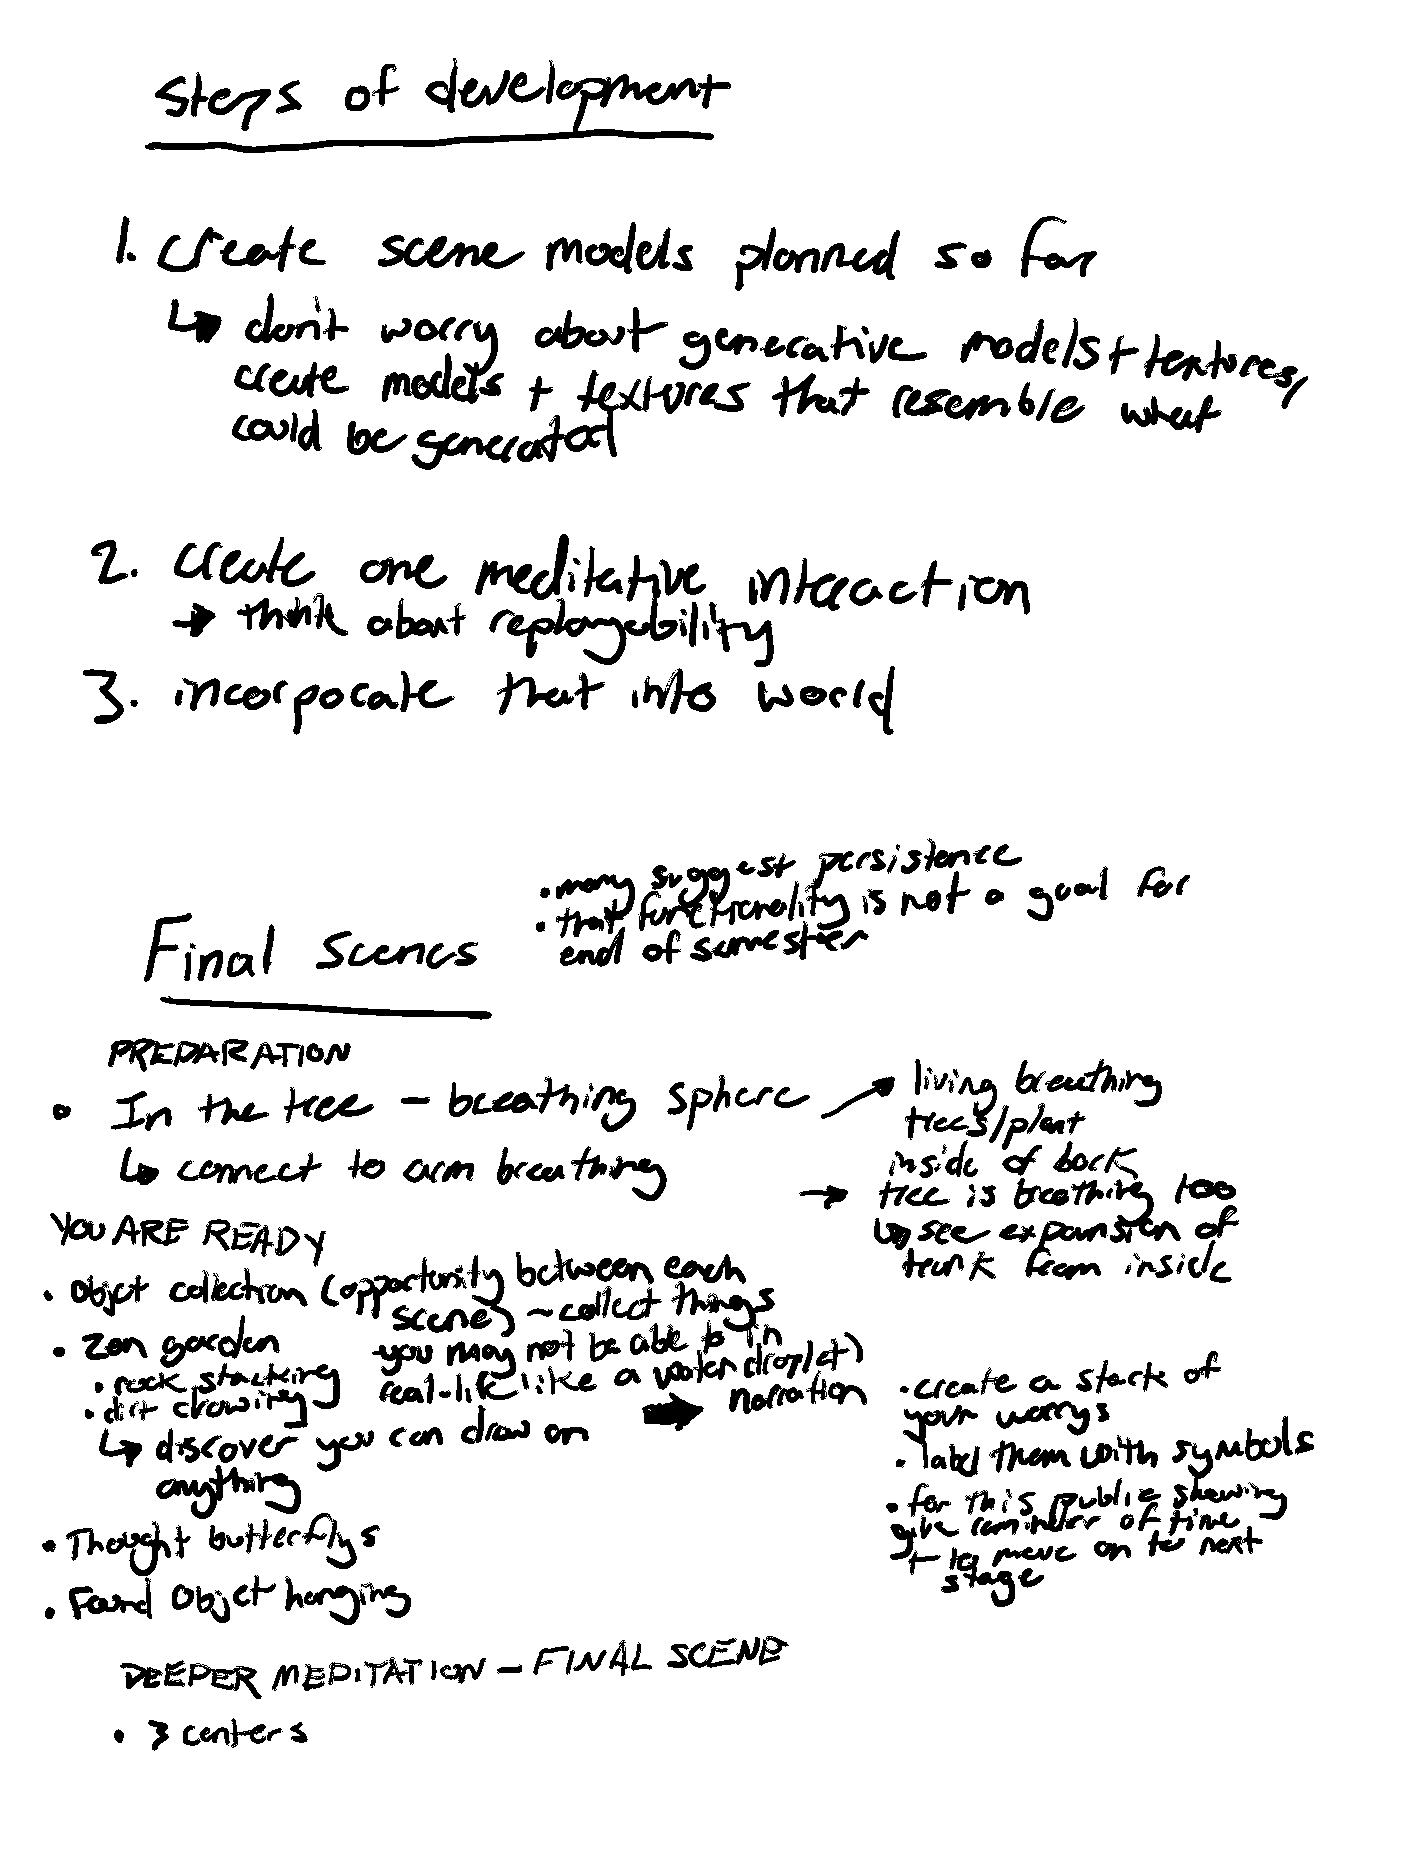 Steps of development
1. create scene models planned so far
↳ don't worry about generative models + textures,
create models + textures that resemble what
could be generated
2. create one meditative interaction
→ think about replayability
3. incorporate that into world
• many suggest persistence
• that functionality is not a goal for
end of semester
Final Scenes
PREPARATION
• In the tree - breathing sphere
↳ connect to arm breathing
→ living breathing
trees/plant
inside of bark
→ tree is breathing too
↳ see expansion of
trunk from inside
YOU ARE READY
• Objet collection (opportunity between each
scene) ~ collect things
you may not be able to in
real-life like a water droplet)
• Zen garden
• rock stacking
• dirt drawing
↳ discover you can draw on
anything
→ narration
• create a stack of
your worrys
• label them with symbols
• for this public showing
give reminder of time
+ to move on to next
stage
• Thought butterflys
• Found Objet hanging
DEEPER MEDITATION - FINAL SCENE
• 3 centers